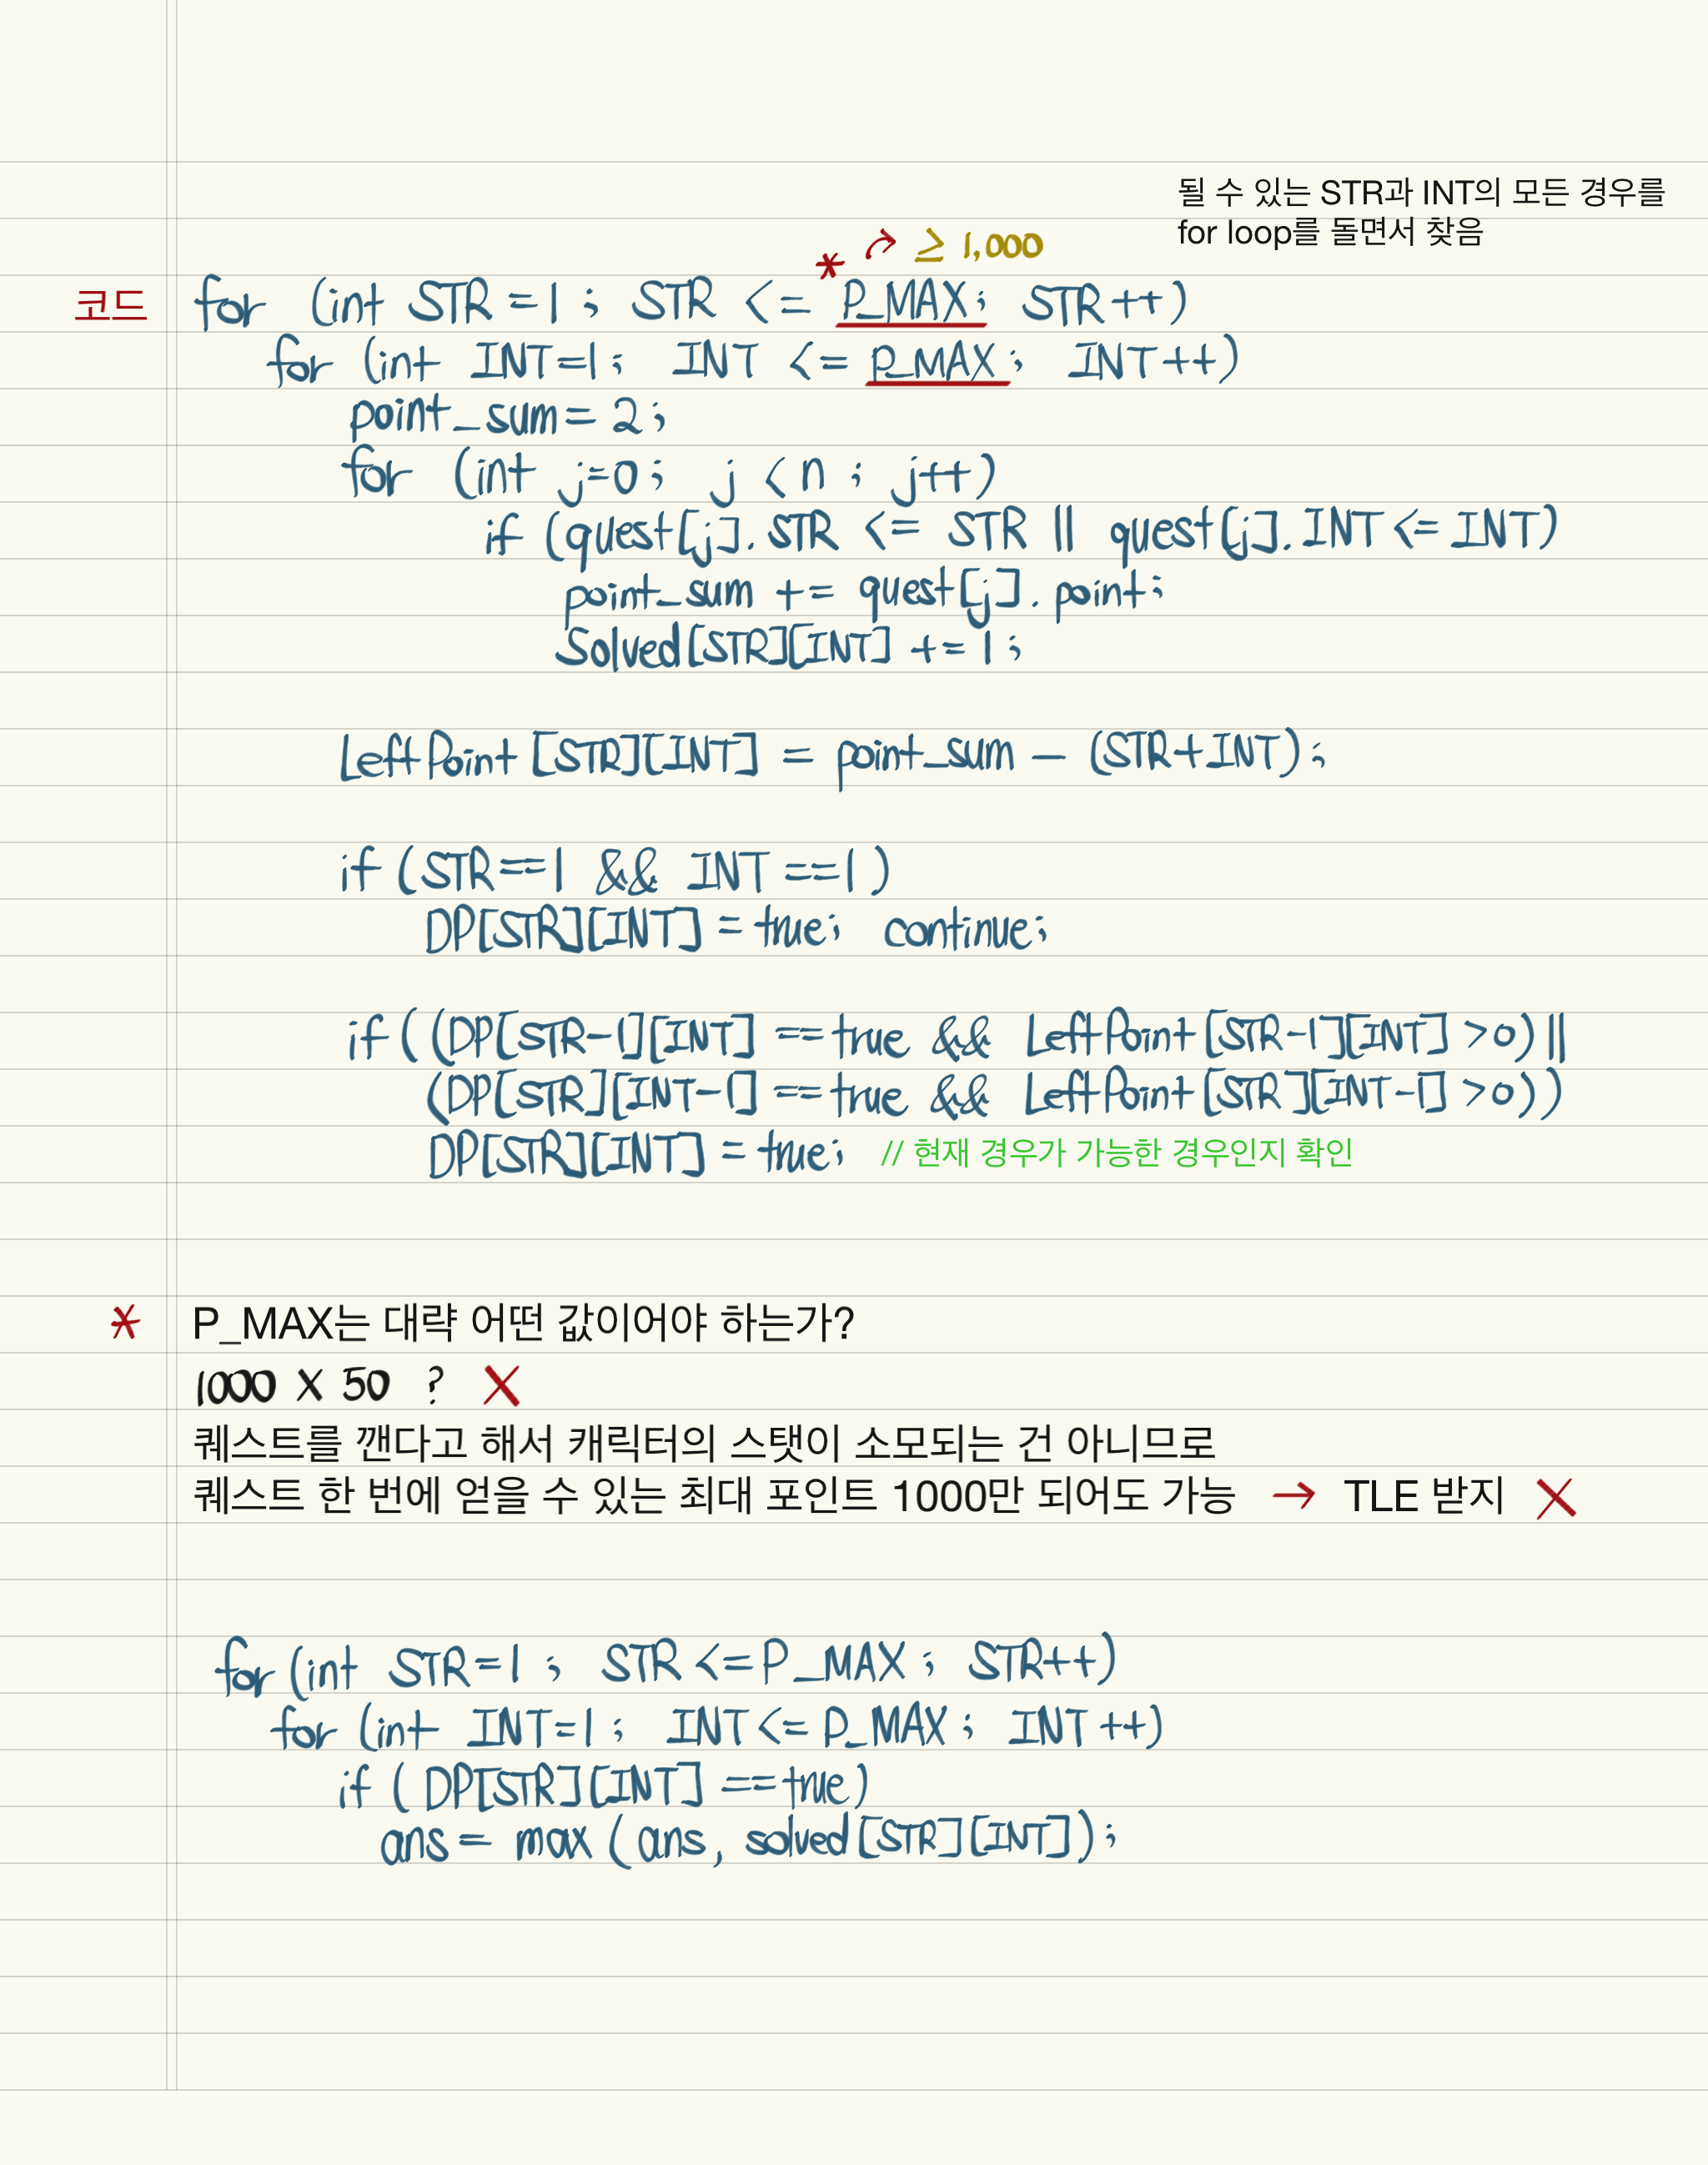 될 수 있는 STR과 INT의 모든 경우를
for loop를 돌면서 찾음
* ≥ 1,000
코드 for (int STR = 1 ; STR <= P_MAX; STR++)
for (int INT=1; INT <= P_MAX; INT++)
point_sum = 2;
for (int j=0; j < n ; j++)
if (quest[j].STR <= STR || quest[j].INT <= INT)
point_sum += quest[j].point;
Solved[STR][INT] += 1;
LeftPoint[STR][INT] = point_sum - (STR+INT);
if (STR==1 && INT ==1)
DP[STR][INT] = true; continue;
if ((DP[STR-1][INT] == true && LeftPoint[STR-1][INT] >0) ||
(DP[STR][INT-1] == true && LeftPoint[STR][INT-1] >0))
DP[STR][INT] = true; // 현재 경우가 가능한 경우인지 확인
* P_MAX는 대략 어떤 값이어야 하는가?
1000 X 50 ? X
퀘스트를 깬다고 해서 캐릭터의 스탯이 소모되는 건 아니므로
퀘스트 한 번에 얻을 수 있는 최대 포인트 1000만 되어도 가능 → TLE 받지 X
for (int STR=1 ; STR <= P_MAX ; STR++)
for (int INT=1 ; INT <= P_MAX ; INT ++)
if ( DP[STR][INT] == true)
ans = max (ans, solved[STR][INT]);